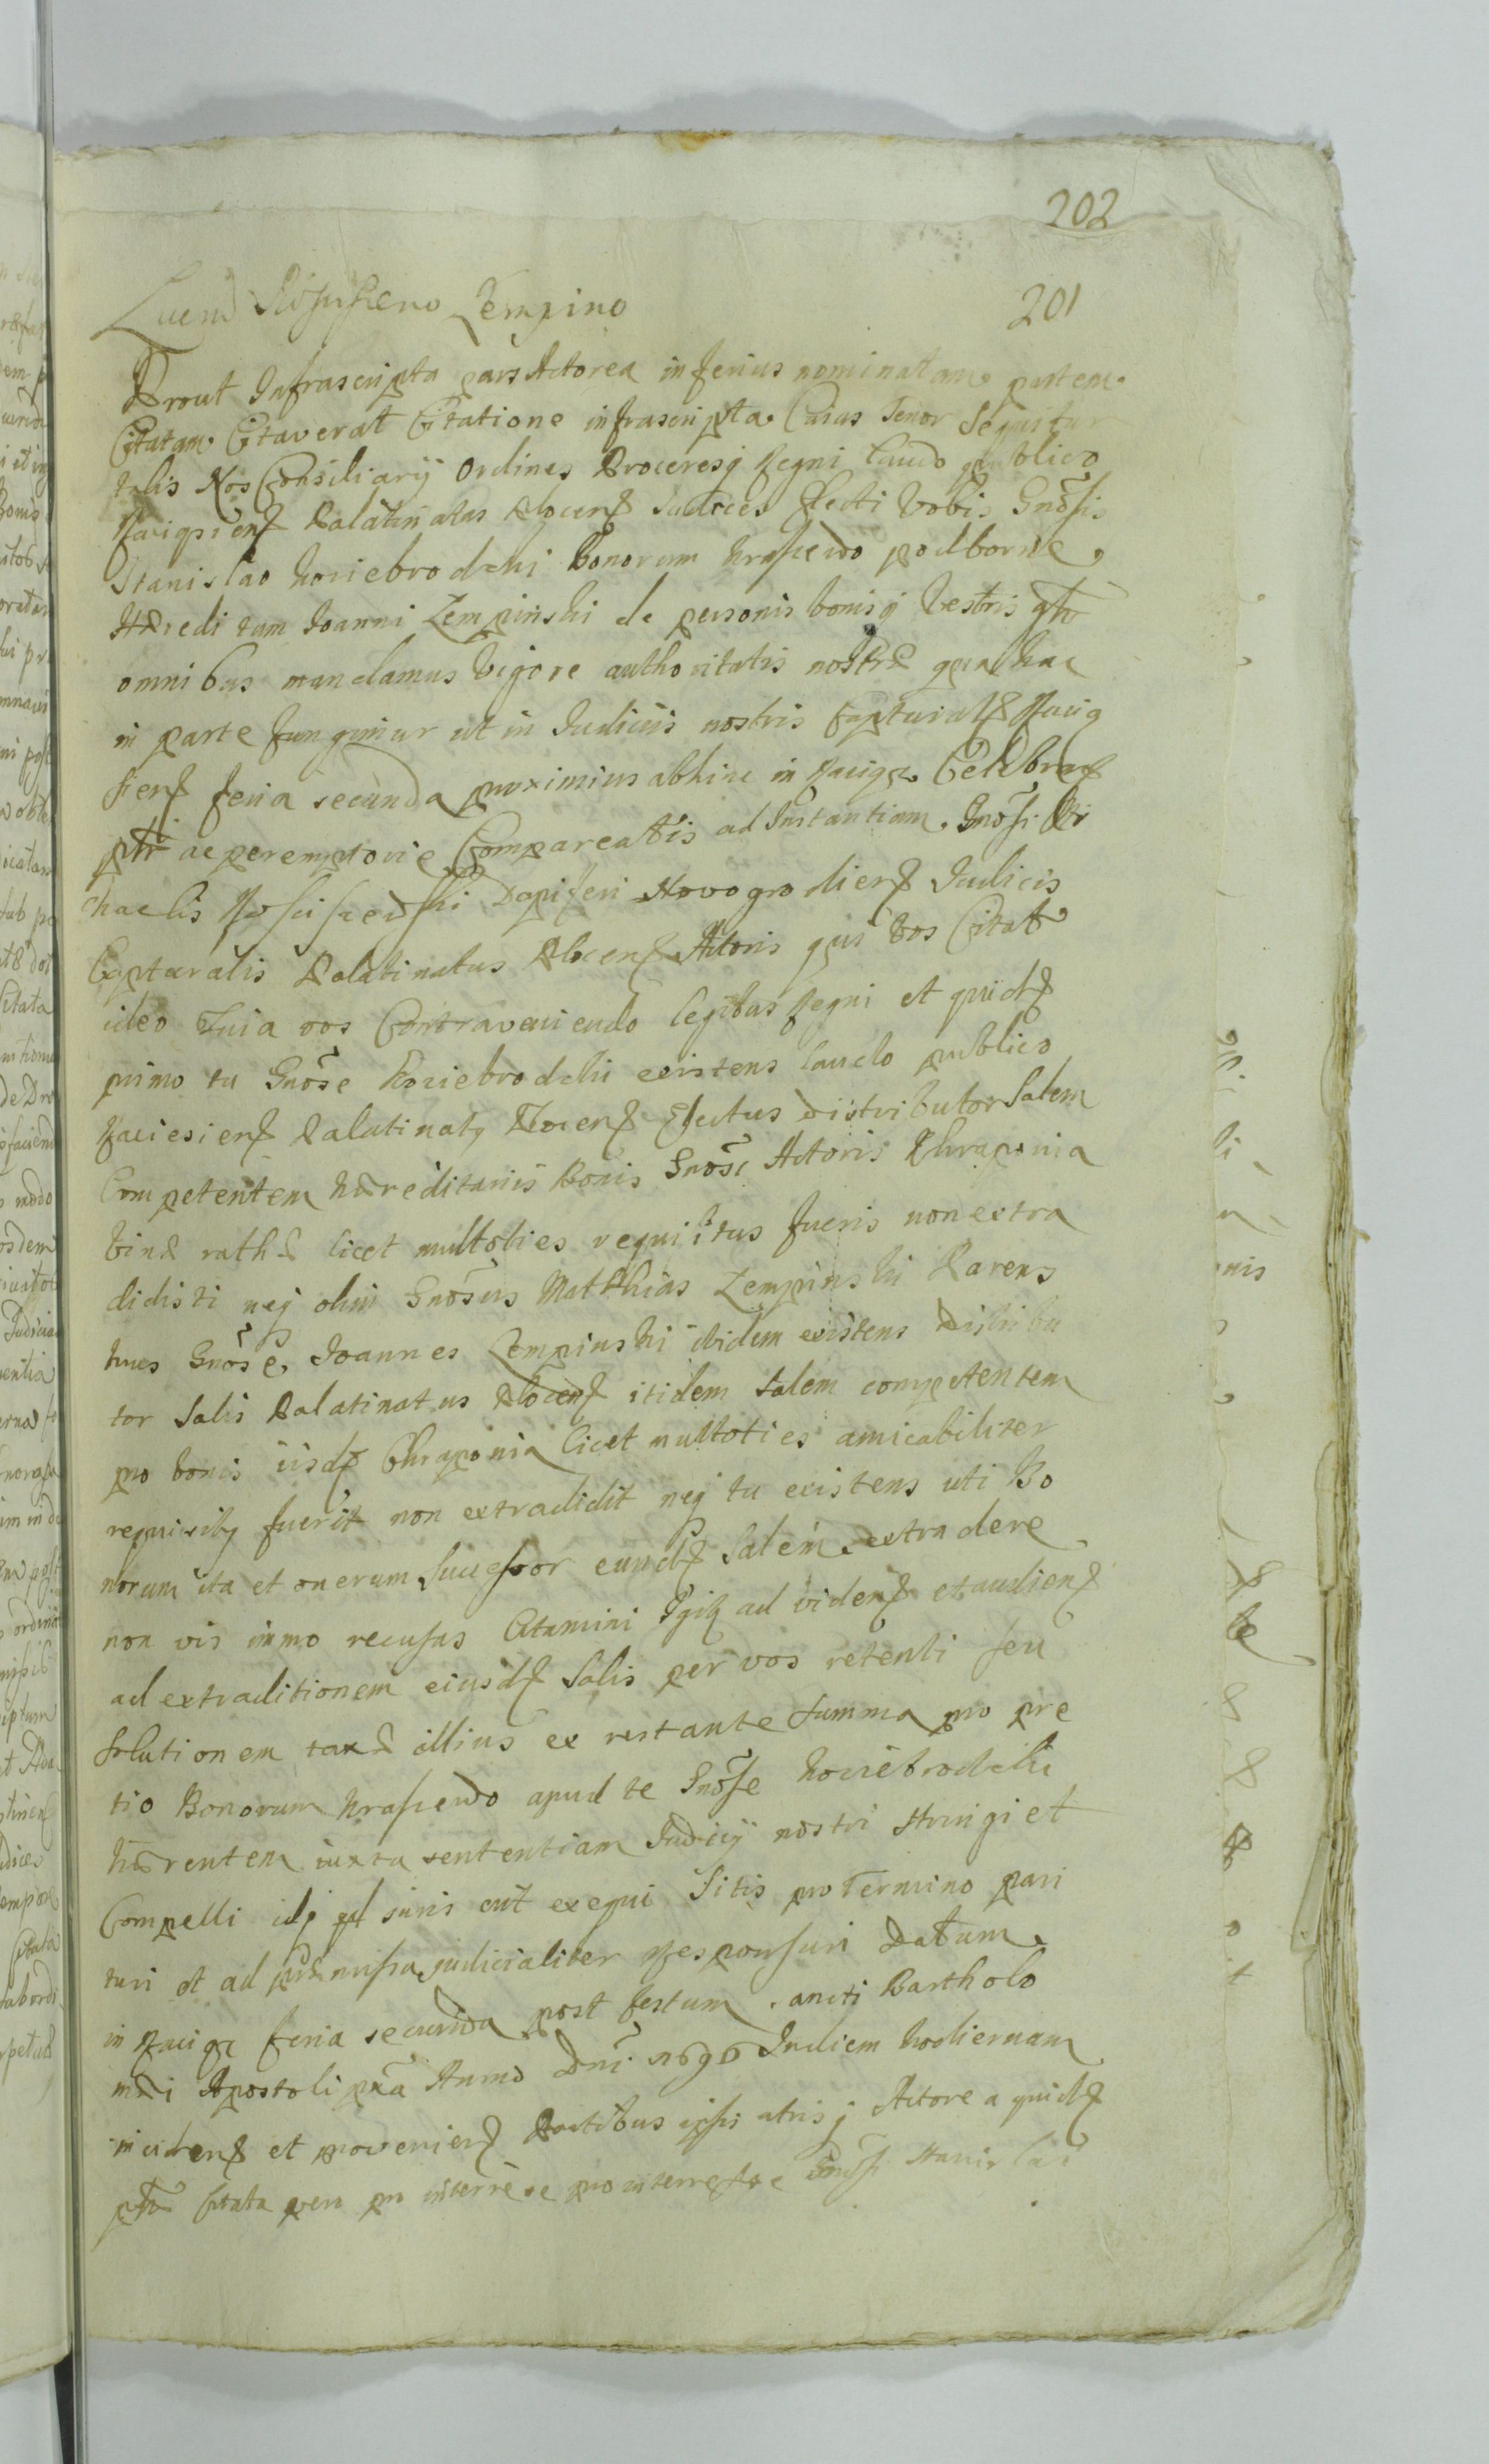 202
201
Lempino
Prout Infrascripta pars Actorea inferius nominatam partem
Citatam Citaverat Citatione infrascripta Cuius Tenor Sequitur
talis Nos Consiliarÿ Ordines Proceresq Regni laudo publico
Raciąsień Palatinatus Plocen Iudices Electi Vobis Gnosis
Stanislao Koziebrodzki Bonorum Kraszewo podborne
Hæredi tum Joanni Zempinski de personis bonisq Vestris
omnibus mandamus Vigore authoritatis nostræ qua hac
in parte fungimur ut in Iudicijs nostris Captural Racią
sien feria secunda proximius abhinc in Raciąz Celebran
ptr ac peremptorie Compareatis ad Instantiam Gnosi Mi
chaelis Dapiferi Novogrodien Iudicis
Capturalis Palatinatus Plocen Actoris qui Vos Citat
ideo Quia vos Contraveniendo legibus Regni et quid
primo tu Gnose Koziebrodzki existens laudo publico
Raciesien Palatinatq Plocen Electus Distributor Salem
Competentem hæreditariis Bonis Gnosi Actoris Chraponia
binæ rathæ licet multoties requisitus fueris non extra
didisti neq olim Gnosus Matthias Zempinski Parens
tuus Gnose Joannes Zempinski ibidem existens Distribu
tor Salis Palatinatus Plocen itidem Salem competentem
pro bonis iisd Chraponia licet multoties amicabiliter
requisitq fuerit non extradidit neq tu existens uti Bo
norum ita et onerum Successor eund Salem extradere
non vis immo recusas Citamini Igitq ad viden et audien
ad extraditionem eiusd Salis per vos retenti seu
Solutionem taxæ illius ex restante Summa pro pre
tio Bonorum Kraszewo apud te Gnose Koziebrodzki
hærentem iuxta sententiam Iudicÿ nostri stringi et
Compelli idq qd iuris erit exequi Sitis pro Termino pari
turi et ad præmissa judicialiter Responsuri Datum
in Raciąz feria secunda post festum Sancti Bartholo
mæi Apostoli pxa Anno Dni 1696 In diem hodiernam
inciden et provenien Partibus ipsis utrisq Actorea quid
Citata vero pr inter re se pro interresse Gnosi Stanislai